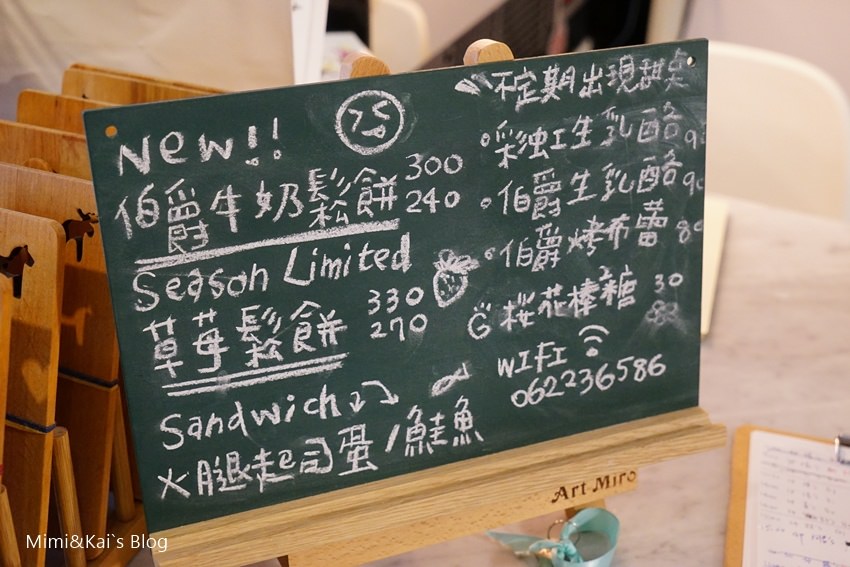 New!!
伯爵牛奶鬆餅 300
240
Season Limited
草莓鬆餅 330
270
Sandwich
火腿起司蛋/鮭魚
不定期出現甜桌
彩虹生乳酪 90
伯爵生乳酪 90
伯爵烤布蕾 80
桜花棒棒糖 30
WIFI
062236586
Art Miro
Mimi&Kai`s Blog